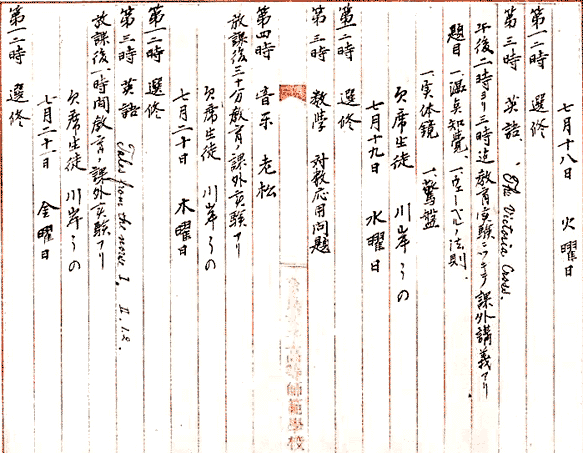 七月十八日 火曜日
第一二時 選修
第三時 英語、The Victoria Cross.
午後二時ヨリ三時迄教育実験ニツキテ課外講義アリ
題目 一、温点知覚、一、ウェーベルノ法則、
一、実体鏡 一、驚盤
欠席生徒 川岸らの
七月十九日 水曜日
第一二時 選修
第三時 数学 対数応用問題
第四時 音楽 老松
放課後三十分教育ノ課外実験アリ
欠席生徒 川岸らの
七月二十日 木曜日
第一二時 選修
第三時 英語 Tales from the norse I. II. 1.2.
放課後一時間教育ノ課外実験アリ
欠席生徒 川岸らの
七月二十一日 金曜日
第一二時 選修
高等師範學校